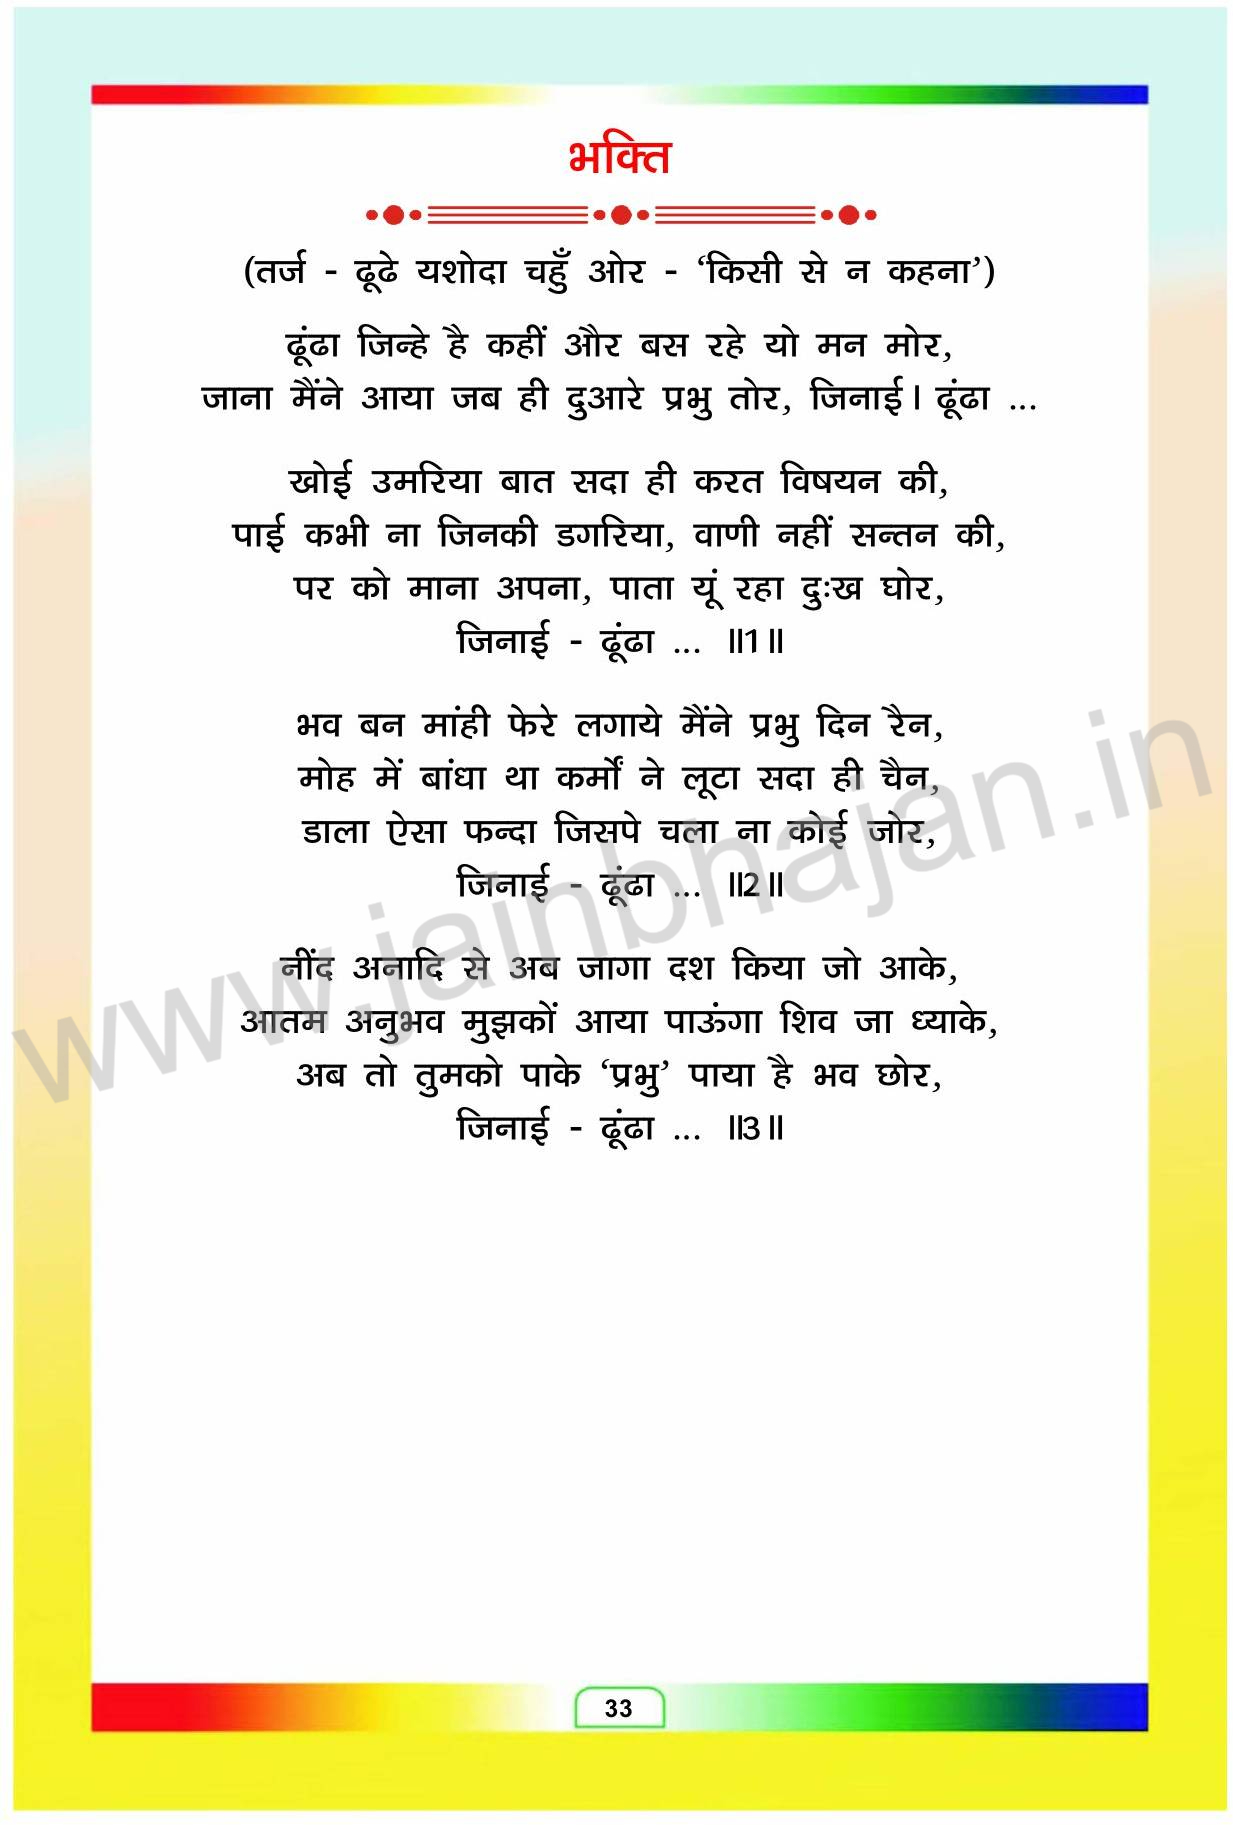 भक्ति
(तर्ज - ढूढे यशोदा चहुँ ओर - ‘किसी से न कहना’)
ढूंढा जिन्हे है कहीं और बस रहे यो मन मोर,
जाना मैंने आया जब ही दुआरे प्रभु तोर, जिनाई। ढूंढा ...
खोई उमरिया बात सदा ही करत विषयन की,
पाई कभी ना जिनकी डगरिया, वाणी नहीं सन्तन की,
पर को माना अपना, पाता यूं रहा दुःख घोर,
जिनाई - ढूंढा ... ॥1॥
भव बन मांही फेरे लगाये मैंने प्रभु दिन रैन,
मोह में बांधा था कर्मों ने लूटा सदा ही चैन,
डाला ऐसा फन्दा जिसपे चला ना कोई जोर,
जिनाई - ढूंढा ... ॥2॥
नींद अनादि से अब जागा दश किया जो आके,
आतम अनुभव मुझकों आया पाऊंगा शिव जा ध्याके,
अब तो तुमको पाके ‘प्रभु’ पाया है भव छोर,
जिनाई - ढूंढा ... ॥3॥
www.jainbhajan.in
33